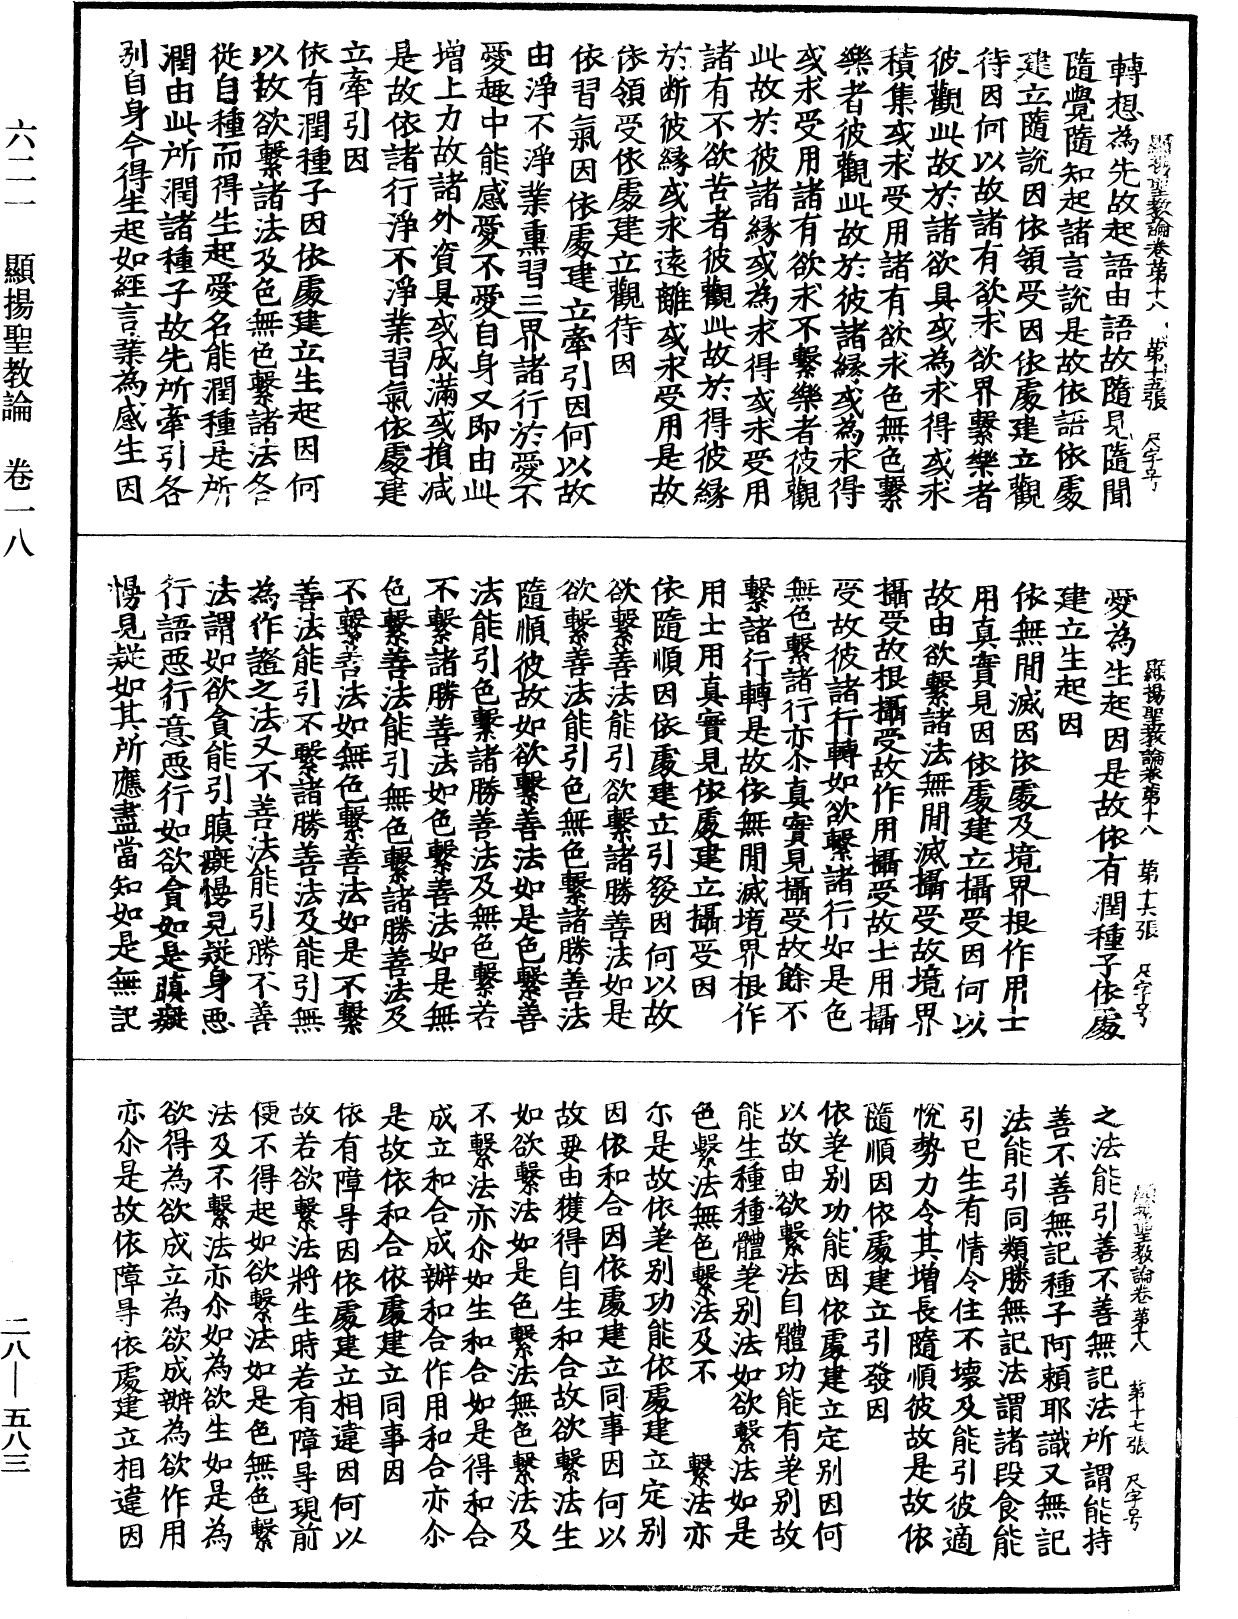 六二一　顯揚聖教論　卷一八
二八—五八三
顯揚聖教論卷第十八　第十五張　尺字号
轉想為先故起語由語故隨見隨聞
隨覺隨知起諸言說是故依語依處
建立隨說因依領受因依處建立觀
待因何以故諸有欲求欲界繫樂者
彼觀此故於諸欲具或為求得或求
積集或求受用諸有欲求色無色繫
樂者彼觀此故於彼諸緣或為求得
或求受用諸有欲求不繫樂者彼觀
此故於彼諸緣或為求得或求受用
諸有不欲苦者彼觀此故於得彼緣
於断彼緣或求遠離或求受用是故
依領受依處建立觀待因
依習氣因依處建立牽引因何以故
由淨不淨業熏習三界諸行於愛不
愛趣中能感愛不愛自身又即由此
增上力故諸外資具或成滿或損减
是故依諸行淨不淨業習氣依處建
立牽引因
依有潤種子因依處建立生起因何
以故欲繫諸法及色無色繫諸法各
從自種而得生起愛名能潤種是所
潤由此所潤諸種子故先所牽引各
别自身今得生起如經言業為感生因
顯揚聖教論卷第十八　第十六張　尺字号
愛為生起因是故依有潤種子依處
建立生起因
依無間滅因依處及境界根作用士
用真實見因依處建立攝受因何以
故由欲繫諸法無間滅攝受故境界
攝受故根攝受故作用攝受故士用攝
受故彼諸行轉如欲繫諸行如是色
無色繫諸行亦尒真實見攝受故餘不
繫諸行轉是故依無間滅境界根作
用士用真實見依處建立攝受因
依隨順因依處建立引發因何以故
欲繫善法能引欲繫諸勝善法如是
欲繫善法能引色無色繫諸勝善法
隨順彼故如欲繫善法如是色繫善
法能引色繫諸勝善法及無色繫若
不繫諸勝善法如色繫善法如是無
色繫善法能引無色繫諸勝善法及
不繫善法如無色繫善法如是不繫
善法能引不繫諸勝善法及能引無
為作證之法又不善法能引勝不善
法謂如欲貪能引瞋癡慢見疑身惡
行語惡行意惡行如欲貪如是瞋癡
慢見疑如其所應盡當知如是無記
顯揚聖教論卷第十八　第十七張　尺字号
之法能引善不善無記法所謂能持
善不善無記種子阿賴耶識又無記
法能引同類勝無記法謂諸段食能
引已生有情令住不壞及能引彼適
悅勢力令其增長隨順彼故是故依
隨順因依處建立引發因
依差别功能因依處建立定别因何
以故由欲繫法自體功能有差别故
能生種種體差别法如欲繫法如是
色繫法無色繫法及不　繫法亦
尒是故依差别功能依處建立定别
因依和合因依處建立同事因何以
故要由獲得自生和合故欲繫法生
如欲繫法如是色繫法無色繫法及
不繫法亦尒如生和合如是得和合
成立和合成辦和合作用和合亦尒
是故依和合依處建立同事因
依有障㝵因依處建立相違因何以
故若欲繫法將生時若有障㝵現前
便不得起如欲繫法如是色無色繫
法及不繫法亦尒如為欲生如是為
欲得為欲成立為欲成辦為欲作用
亦尒是故依障㝵依處建立相違因